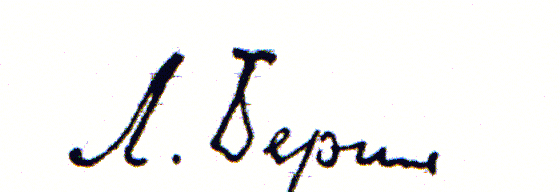 Л. Берия